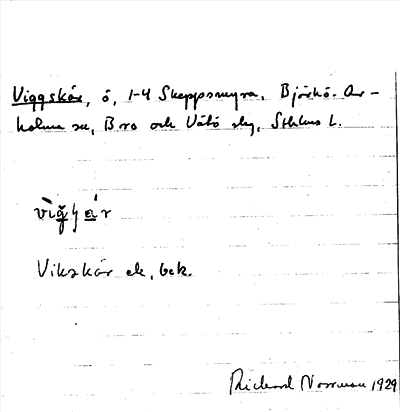 Viggskär, ö, 1-4 Skeppsmyra, Björkö-Ar-
holma sn, Bro och Vätö slg, Sthlms l.
Vikskär ek, bek.
Richard Norrman 1929